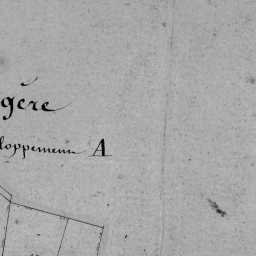 gère
loppement A